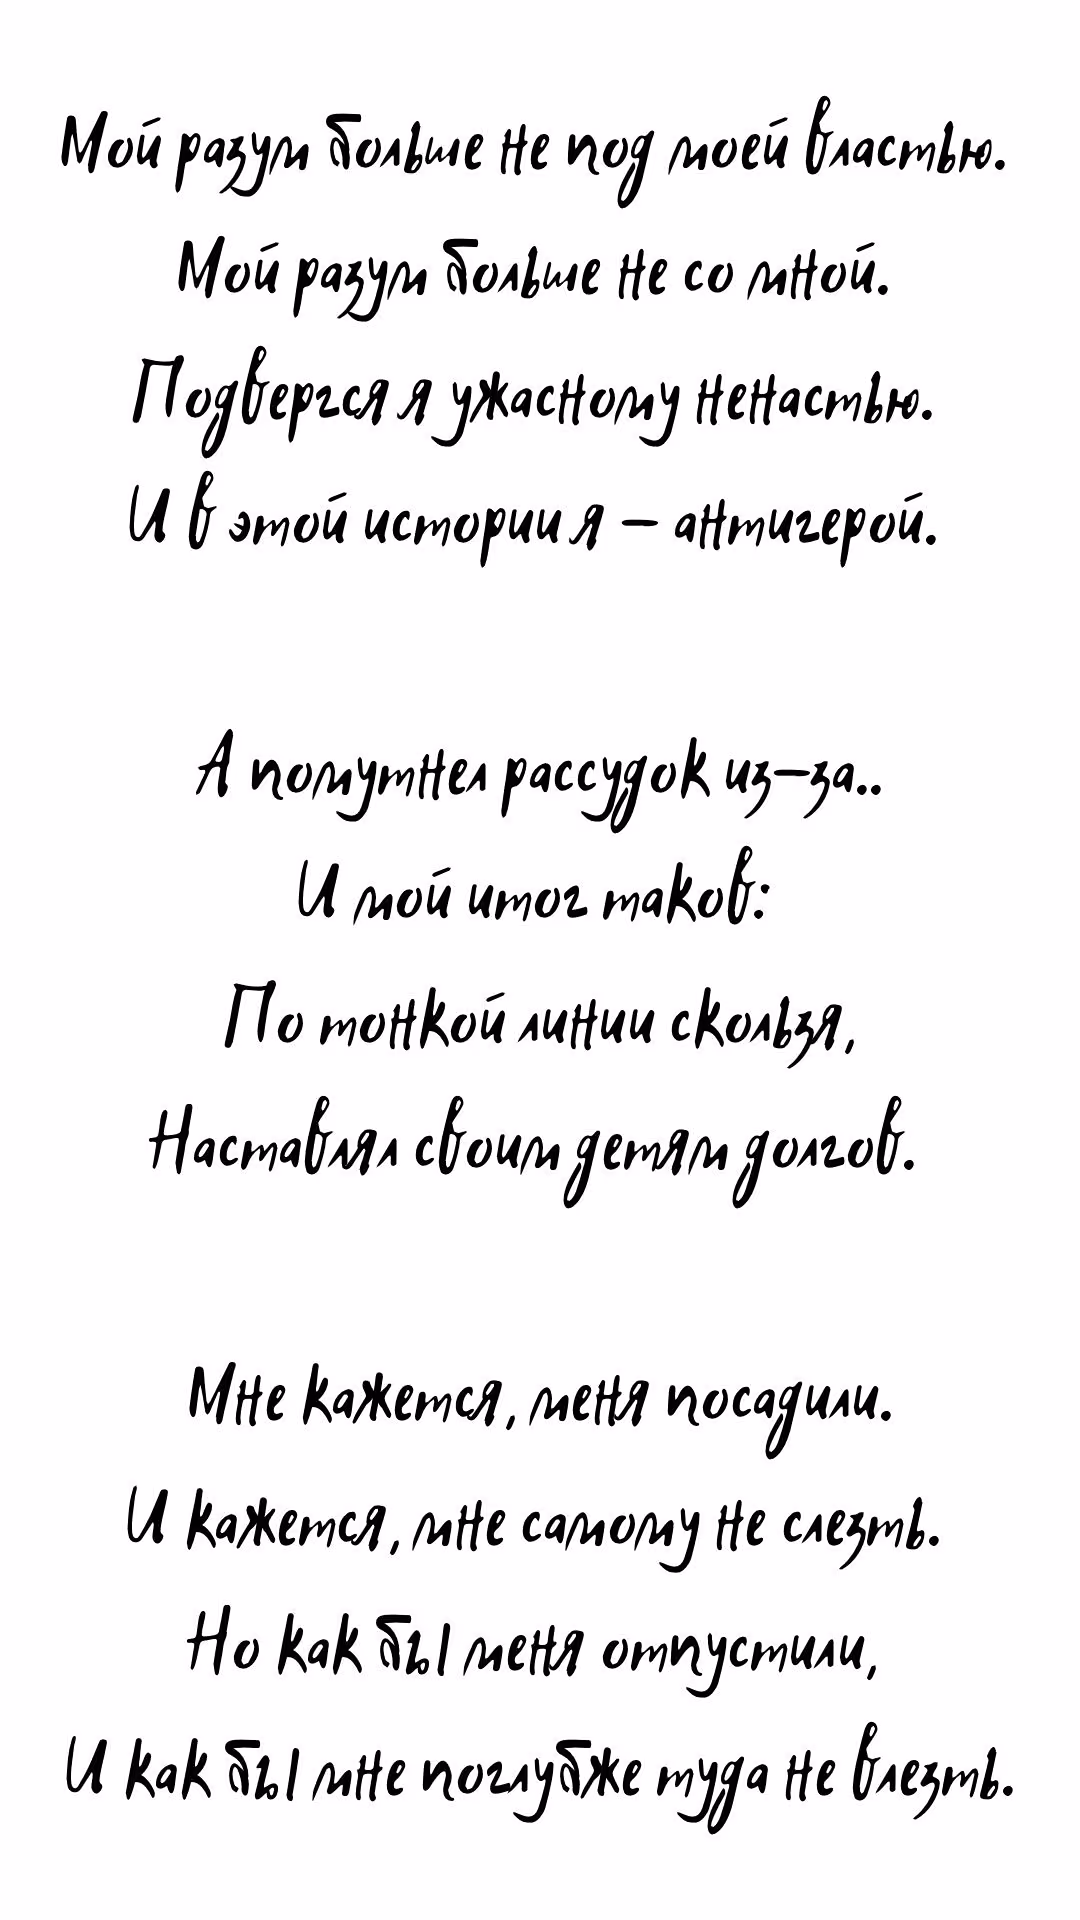 Мой разум больше не под моей властью.
Мой разум больше не со мной.
Подвергся я ужасному ненастью.
И в этой истории я – антигерой.
А помутнел рассудок из-за..
И мой итог таков:
По тонкой линии скользя,
Наставлял своим детям долгов.
Мне кажется, меня посадили.
И кажется, мне самому не слезть.
Но как бы меня отпустили,
И как бы мне поглубже туда не влезть.